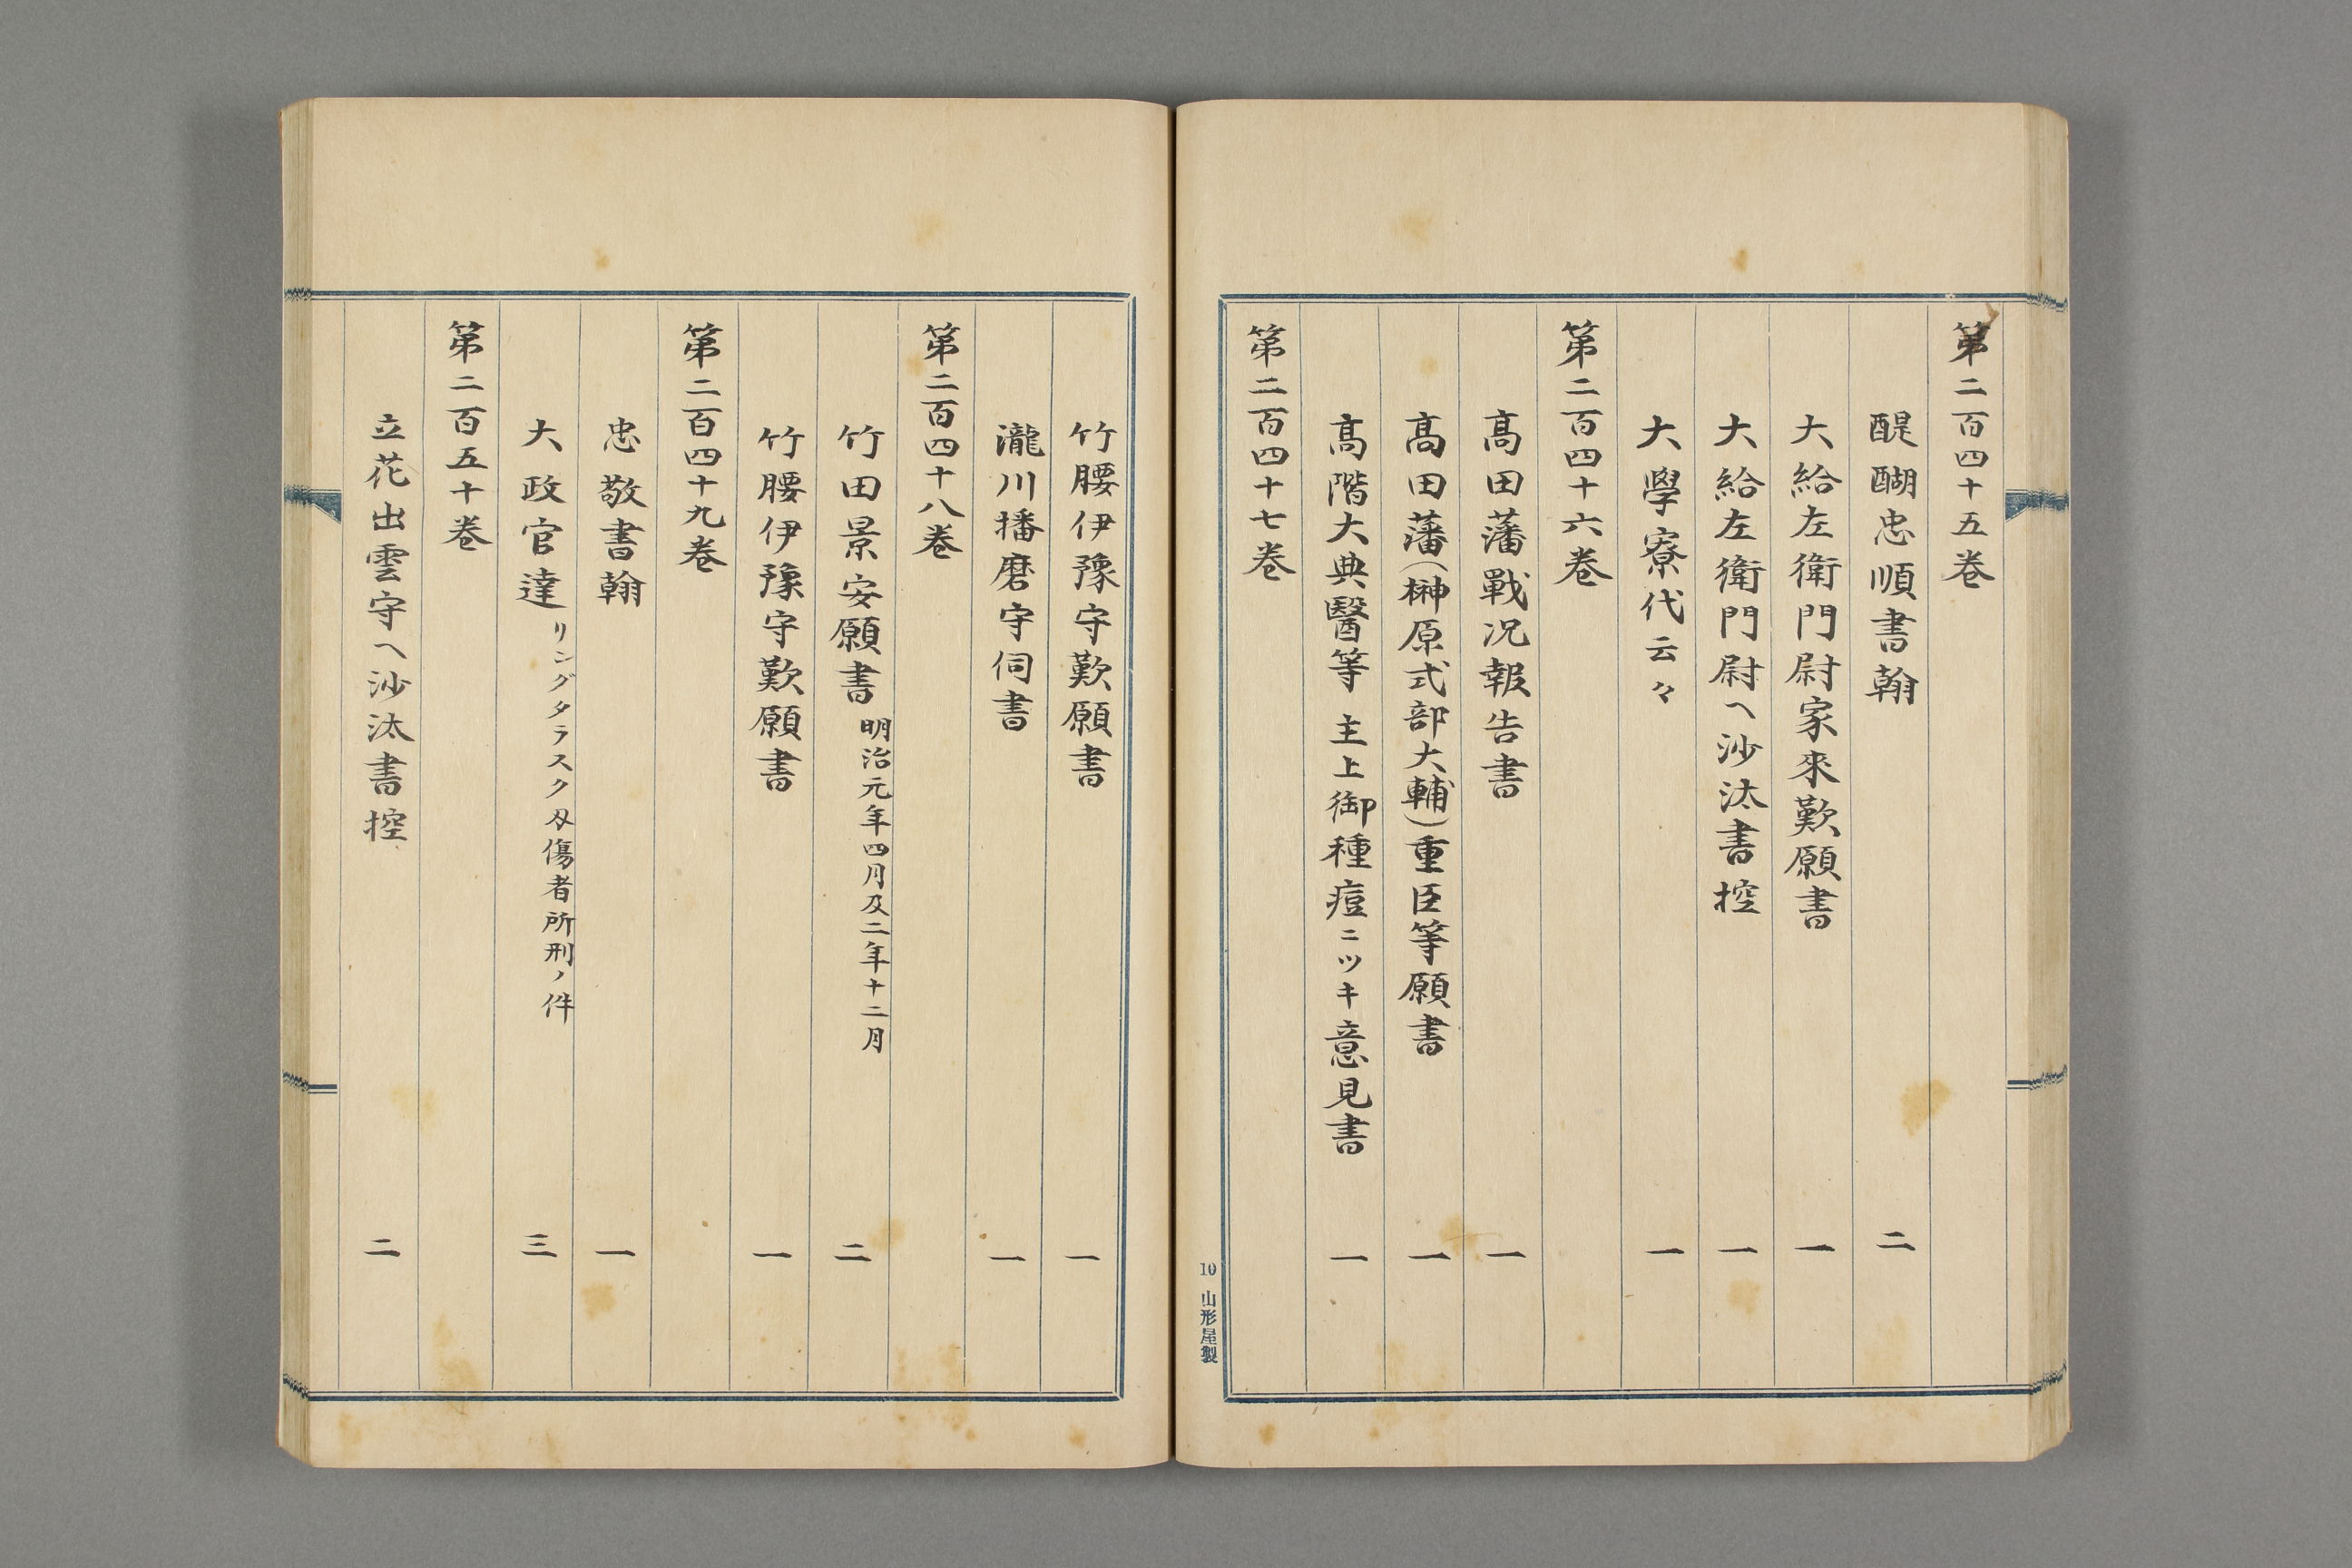 第二百四十五巻
醍醐忠順書翰 二
大給左衛門尉家來歎願書 一
大給左衛門尉ヘ沙汰書控 一
大學寮代云々 一
第二百四十六巻
髙田藩戰況報告書 一
髙田藩(榊原式部大輔)重臣等願書 一
髙階大典醫等 主上御種痘ニツキ意見書 一
第二百四十七巻
10 山形屋製
竹腰伊豫守歎願書 一
瀧川播磨守伺書 一
第二百四十八巻
竹田景安願書 明治元年四月及二年十二月 二
竹腰伊豫守歎願書 一
第二百四十九巻
忠敬書翰 一
大政官達 リングタラスク刄傷者所刑ノ件 三
第二百五十巻
立花出雲守ヘ沙汰書控 二